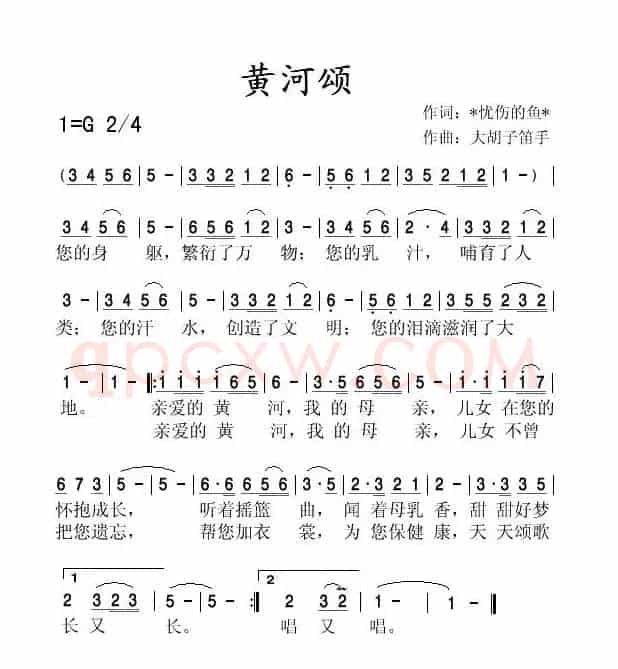 黄河颂
1=G 2/4
作词：*忧伤的鱼*
作曲：大胡子笛手
(3 4 5 6 | 5 - | 3 3 2 1 2 | 6 - | 5 6 1 2 | 3 5 2 1 2 | 1 - ) |
3 4 5 6 | 5 - | 6 5 6 1 2 | 3 - | 3 4 5 6 | 2 · 4 | 3 3 2 1 2 |
您的身 躯，繁衍了万 物；您的乳 汁， 哺育了人
3 - | 3 4 5 6 | 5 - | 2 2 1 2 | 6 - | 5 6 1 2 | 5 5 2 3 2 |
类；您的汗 水，创造了文 明；您的泪滴滋润了大
qpcxw.COM
1 - | 1 - ‖: 1 1 1 1 | 1 6 5 | 6 - | 3 · 5 | 6 - | 5 · 6 | 1 1 1 7 |
地。 亲爱的 黄 河，我 的 母 亲，儿女 在您的
亲爱的 黄 河，我 的 母 亲，儿女 不曾
6 7 3 | 5 - | 5 - | 6 · 6 6 | 6 5 6 | 3 - | 5 2 · 3 2 1 | 2 - | 5 · 3 | 2 3 5 |
怀抱成长， 听着摇篮 曲，闻 着母乳 香，甜 甜好梦
把您遗忘， 帮您加衣 裳，为 您保健 康，天 天颂歌
1
2 3 2 3 | 5 - | 5 - :‖
2
2 3 2 | 1 - | 1 - ‖
长 又 长。 唱 又 唱。